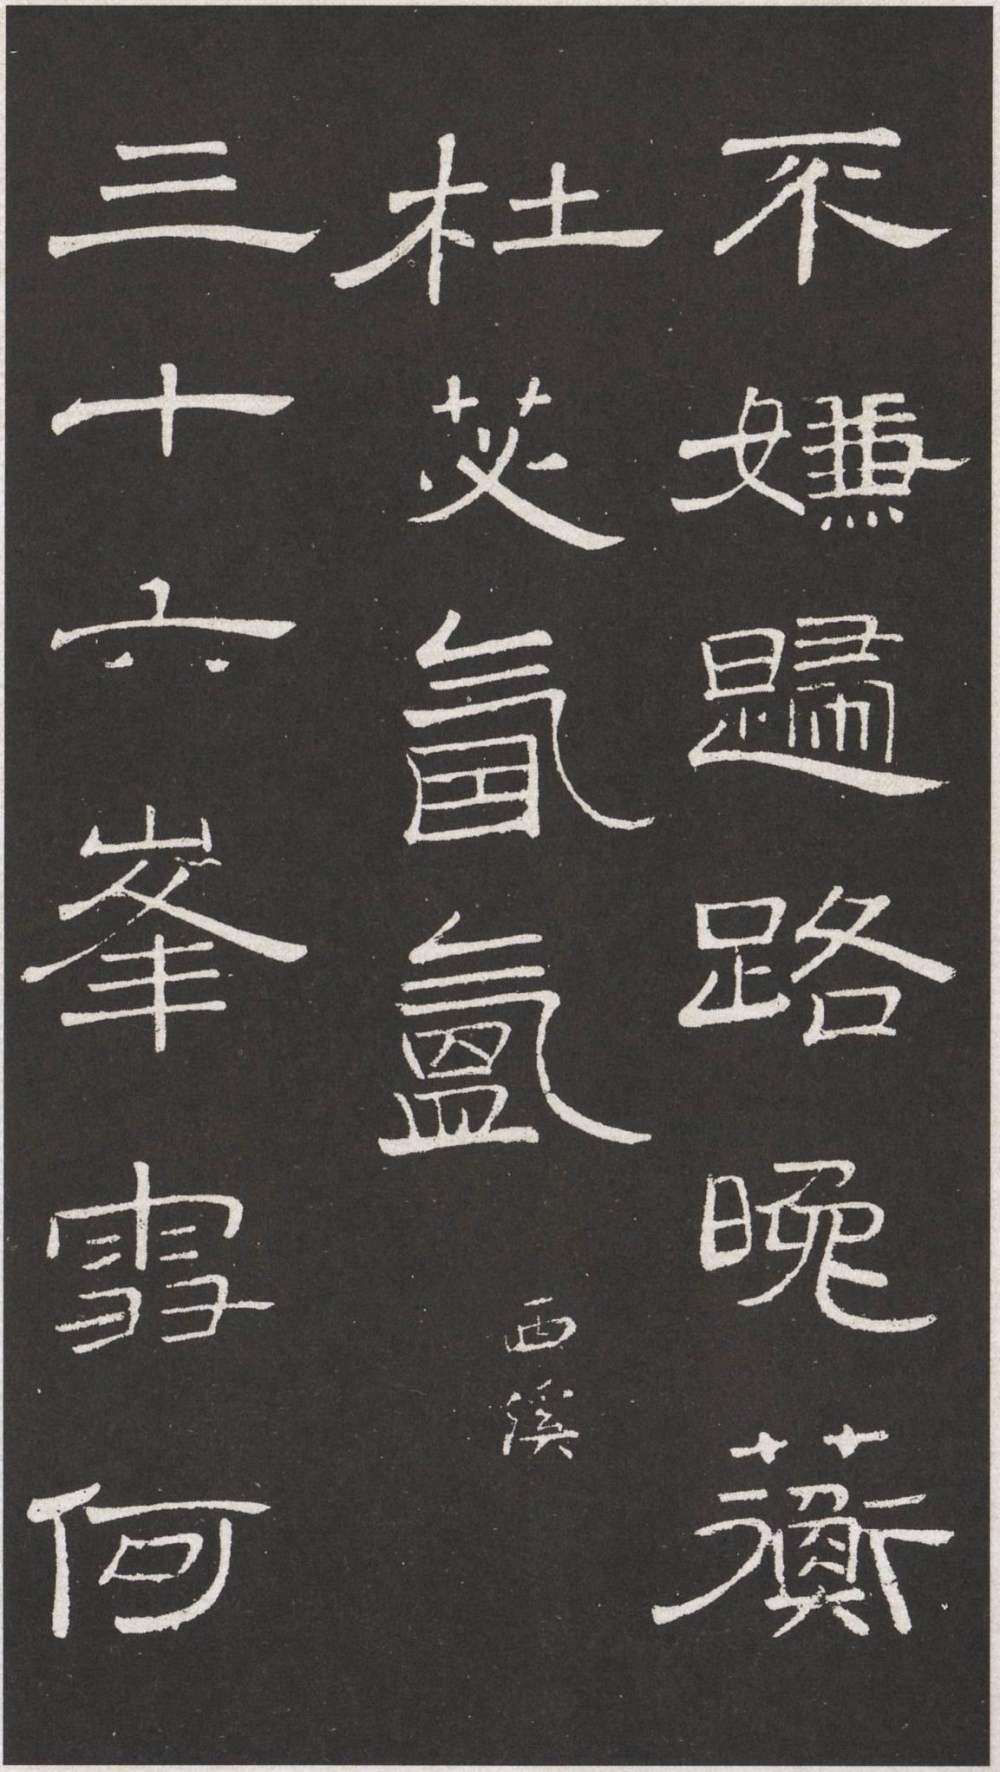 不嫌歸路晚蘅
杜苾氤氳
西溪
三十六峯雪何